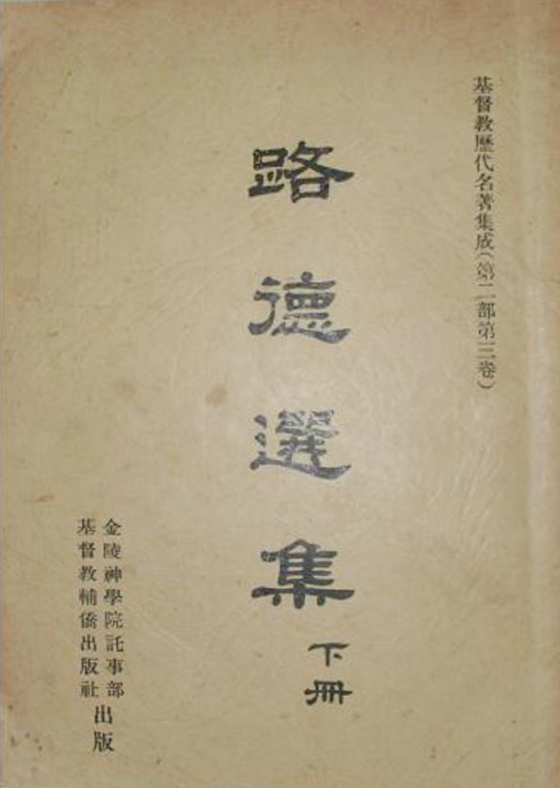 基督教歷代名著集成(第二部第三卷)
路德選集
下冊
金陵神學院託事部
基督教輔僑出版社
出版